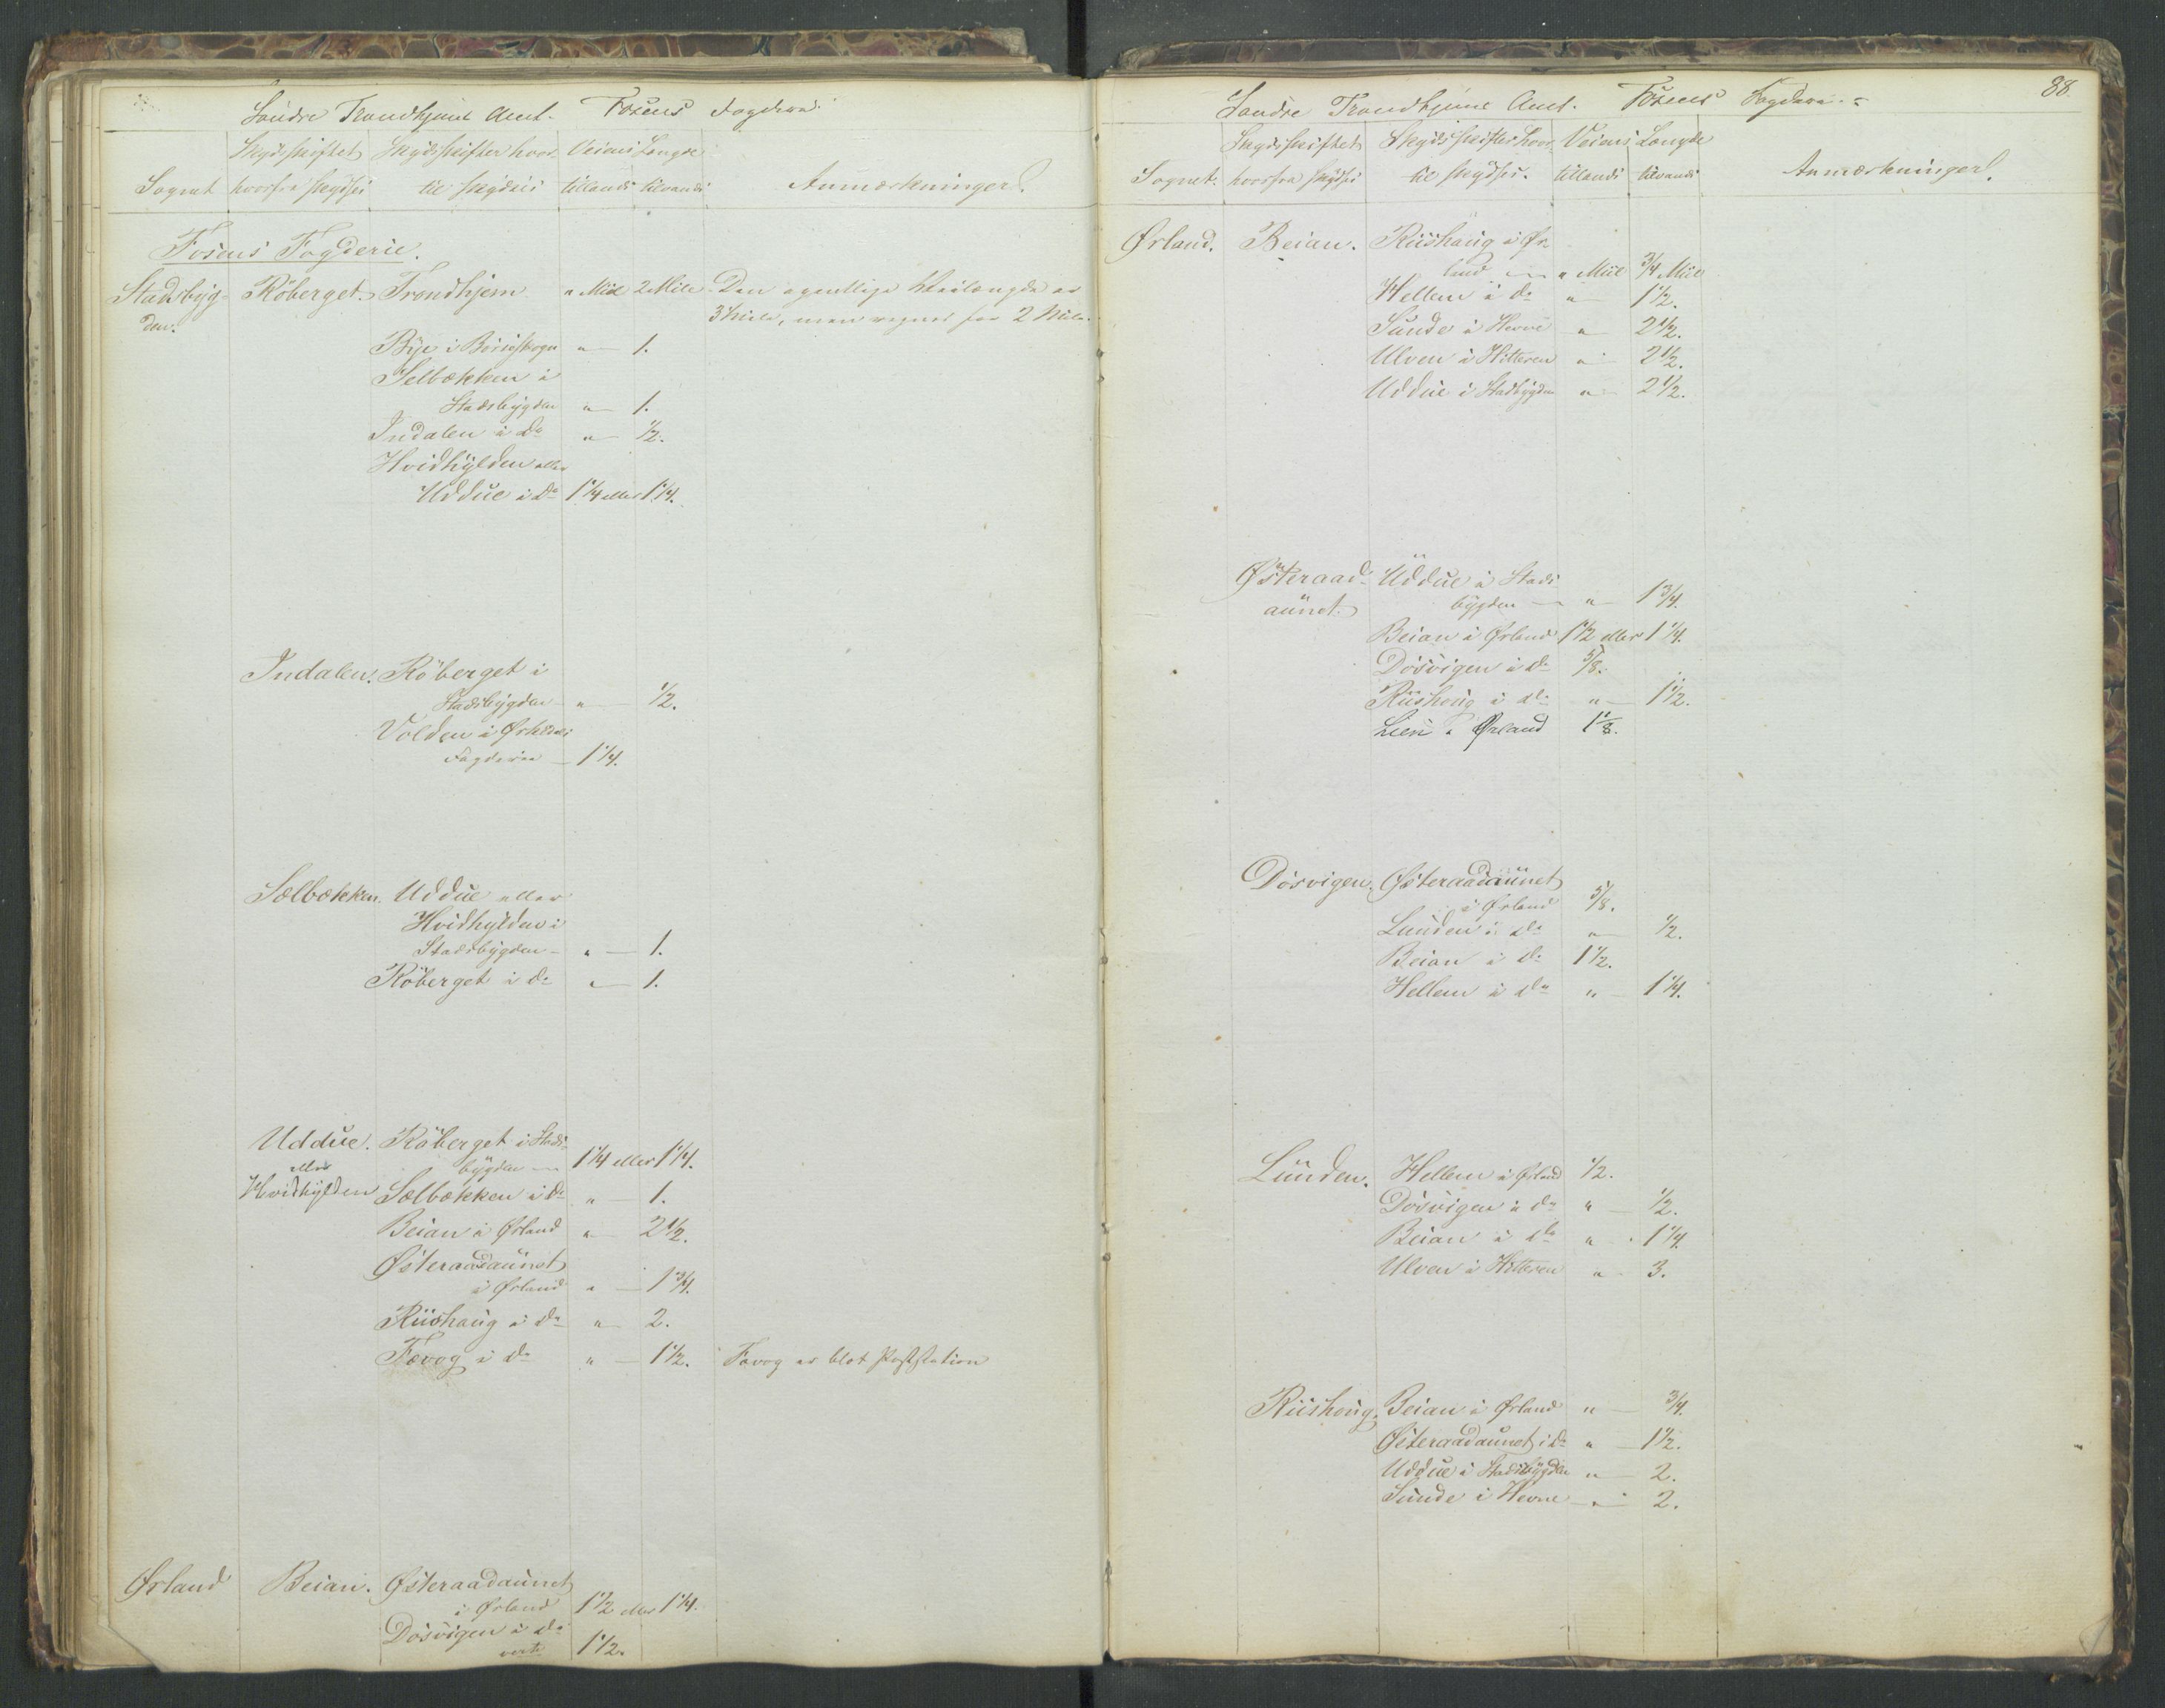 Søndre Trondhjems Amt. Fosens Fogderie.
Skydsskiftet Skydsskifter hvor- Veiens Længde
Sognet hvorfra skydses til skydses tillands tilvands Anmærkninger.
Fosens Fogderie.
Stadsbyg- Röberget. Trondhjem " Miil 2 Mile Den egentlige Veilængde er
den. 3 Mile, men regnes for 2 Mile.
Bye i Börseskogn " 1.
Selbækken i
Stadsbygden " 1.
Indalen i do " 1/2.
Hvidhylden eller
Uddue i do 1 1/4 eller 1 1/4.
Indalen. Röberget i
Stadsbygden " 1/2.
Volden i Örkedals
Fogderie 1 1/4.
Sælbækken. Uddue eller
Hvidhylden i
Stadsbygden " 1.
Röberget i do " 1.
Uddue. Röberget i Stads-
eller bygden 1 1/4 eller 1 1/4.
Hvidhylden Sælbækken i do " 1.
Beian i Ørland " 2 1/2.
Østeraadaunet
i Ørland " 1 3/4.
Riishaug i do " 2.
Fævog i do " 1 1/2. Fævog er blot Poststation
Ørland Beian. Østeraadaunet
i Ørland 1 1/2 eller 1 1/4.
Dösvigen i do 1 1/2.
vert
88.
Søndre Trondhjems Amt. Fosens Fogderie.
Skydsskiftet Skydsskifter hvor- Veiens Længde
Sognet. hvorfra skydses til skydses. tillands tilvands Anmærkninger.
Ørland. Beian. Riishaug i Ør-
land " Miil 3/4 Miil
Hellem i do " 1 1/2.
Sunde i Hevne " 2 1/2.
Ulven i Hitteren " 2 1/2.
Uddue i Stadsbygden " 2 1/2.
Østeraad- Uddue i Stads-
aunet. bygden " 1 3/4.
Beian i Ørland 1 1/2 eller 1 1/4.
Dösvigen i do 5/8.
Riishoug i do " 1 1/2.
Lien i Ørland 1 1/8.
Dösvigen. Østeraadaunet
i Ørland 5/8.
Lunden i do " 1/2.
Beian i do 1 1/2.
Hellem i do " 1 1/4.
Lunden. Hellem i Ørland 1/2.
Dösvigen i do " 1/2.
Beian i do " 1 1/4.
Ulven i Hitteren " 3.
Riishoug. Beian i Ørland " 3/4.
Østeraadaunet i do " 1 1/2.
Uddue i Stadsbygden " 2.
Sunde i Hevne " 2.